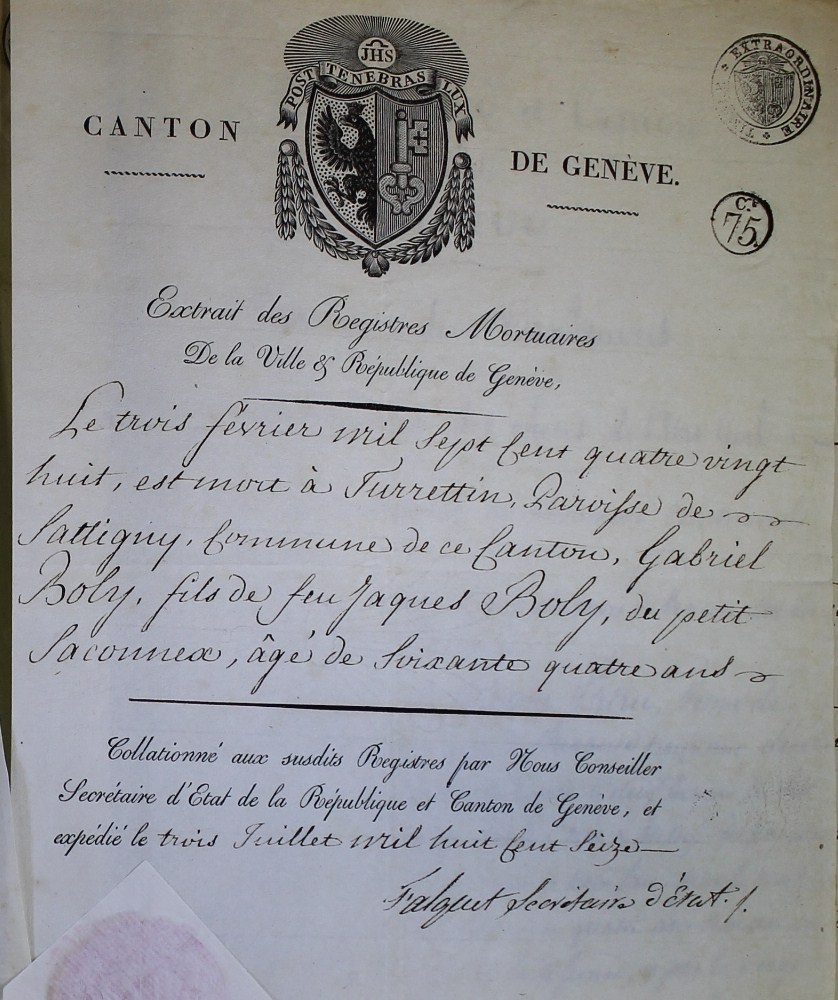 JHS
POST TENEBRAS LUX
CANTON DE GENÈVE.
TIMBRE * EXTRAORDINAIRE *
C.es
75.
Extrait des Registres Mortuaires
De la Ville & République de Genève,
Le trois février mil Sept Cent quatre vingt
huit, est mort à Turrettin, Paroisse de
Sattigny, Commune de ce Canton, Gabriel
Boly, fils de feu Jaques Boly, du petit
Saconnex, âgé de Soixante quatre ans
Collationné aux susdits Registres par Nous Conseiller
Secrétaire d'Etat de la République et Canton de Genève, et
expédié le trois Juillet mil huit Cent Seize
Falquet Secrétaire d'État.